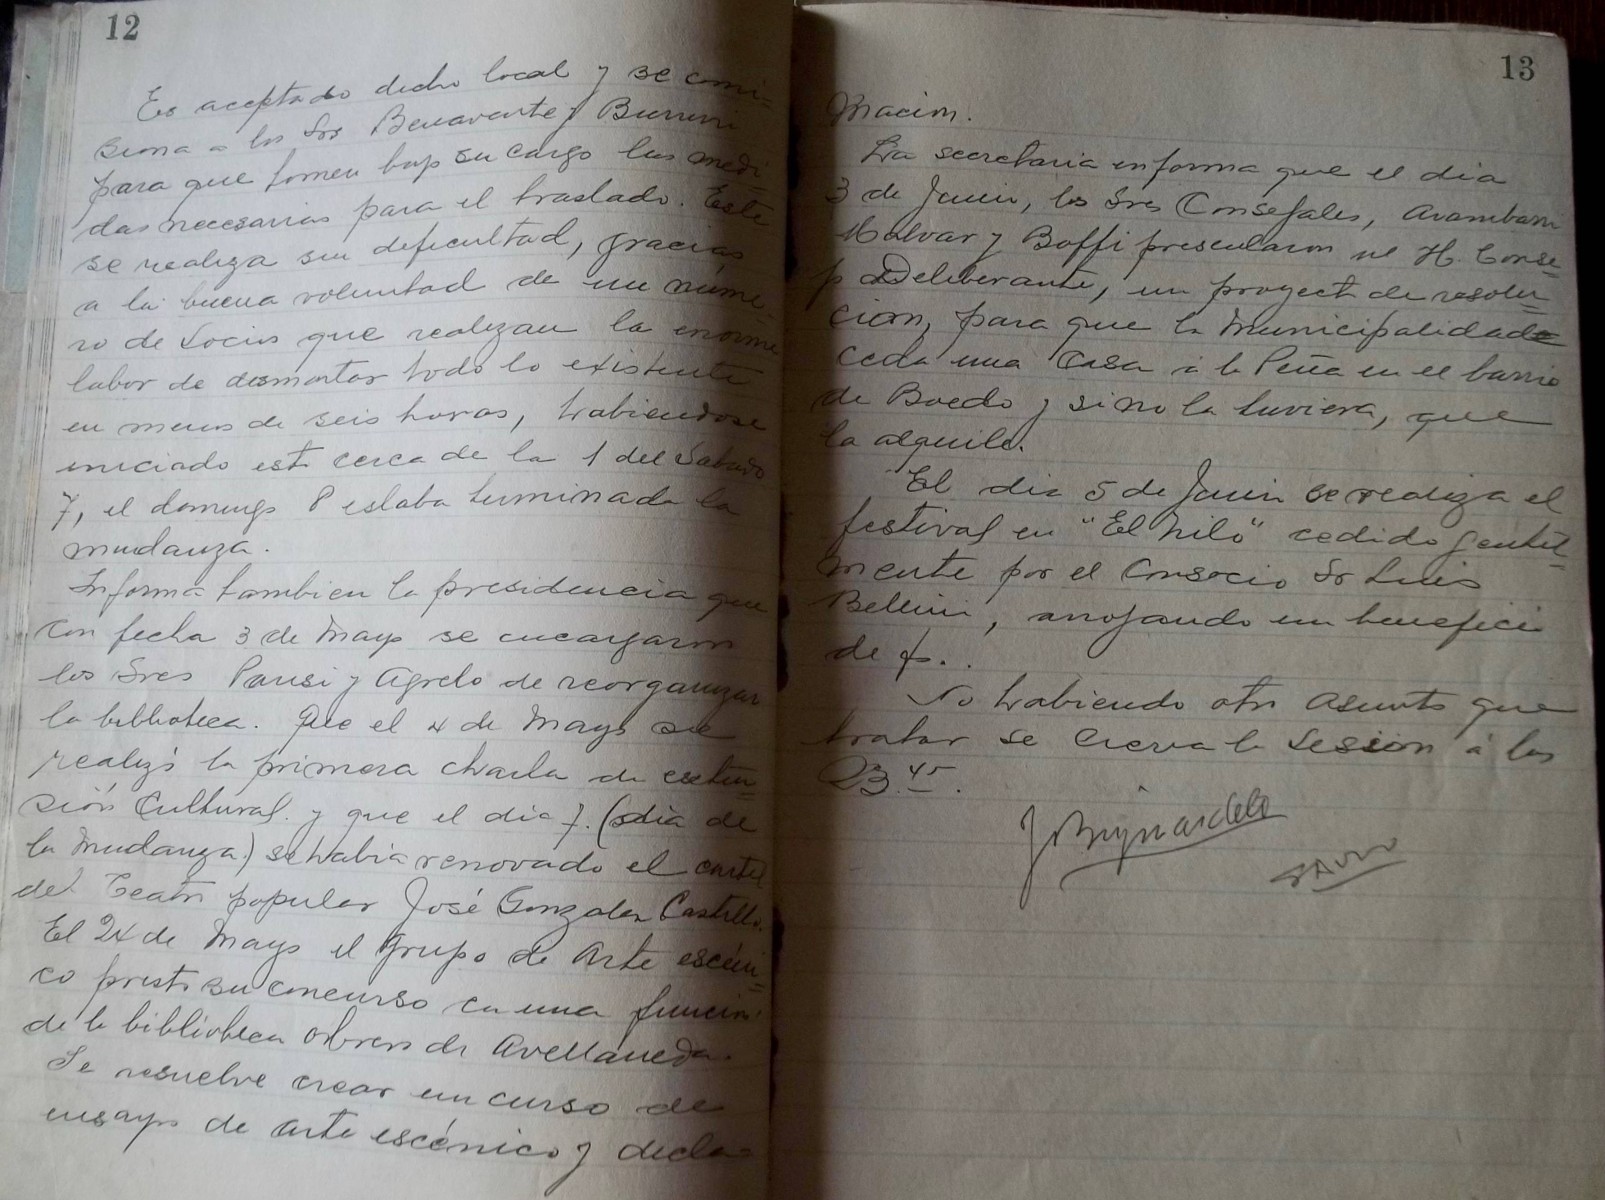 12
Es aceptado dicho local y se comi-
siona a los Srs Benavente y Burrini
para que tomen bajo su cargo las medi-
das necesarias para el traslado. Este
se realiza sin deficultad, gracias
a la buena voluntad de un núme-
ro de Socios que realizan la enorme
labor de desmontar todo lo existente
en menos de seis horas, habiendose
iniciado esta cerca de la 1 del Sabado
7, el domingo 8 estaba terminada la
mudanza.
Informa tambien la presidencia que
con fecha 3 de Mayo se encargaron
los Sres Parisi y Agrelo de reorganizar
la biblioteca. Que el 4 de Mayo se
realizó la primera charla de exten-
sión Cultural. y que el dia 7. (dia de
la Mudanza) se habia renovado el cartel
del Teatro popular José Gonzalez Castillo.
El 24 de Mayo el grupo de Arte escéni-
co prestó su concurso en una función
de la biblioteca obrera de Avellaneda.
Se resuelve crear un curso de
ensayo de arte escénico y decla-
13
macion.
La secretaria informa que el dia
3 de Junio, los Sres Consejales, Arambarri
Malvar y Boffi presentaron al H. Conse-
jo Deliberante, un proyecto de resolu-
cion, para que la Municipalidad
ceda una casa a la Peña en el barrio
de Boedo y si no la tuviera, que
la alquile.
El dia 5 de Junio se realiza el
festival en "El Nilo" cedido gentil-
mente por el Consocio Sr Luis
Bellini, arrojando un beneficio
de $..
No habiendo otro Asunto que
tratar se cierra la Sesión á las
23.45.
J Bignardelo